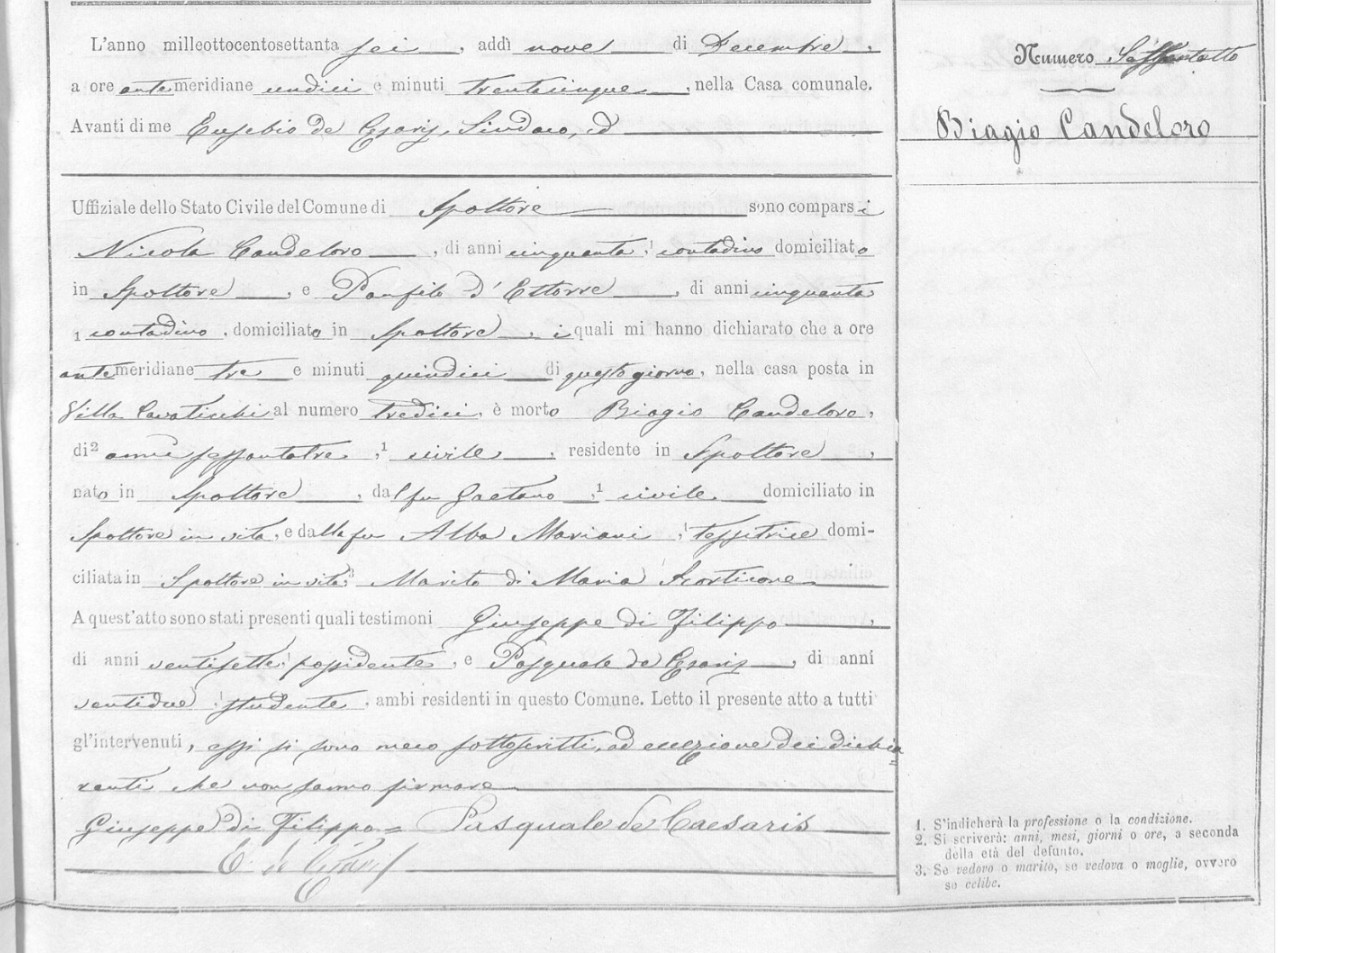 L'anno milleottocentosettanta sei, addì nove di Decembre,
a ore antemeridiane undici e minuti trentacinque, nella Casa comunale.
Avanti di me Eusebio de Cesaris, Sindaco, ed
Uffiziale dello Stato Civile del Comune di Spoltore sono comparsi
Nicola Candeloro, di anni cinquanta, ¹ contadino domiciliato
in Spoltore, e Panfilo d'Ettorre, di anni cinquanta
1 contadino, domiciliato in Spoltore, i quali mi hanno dichiarato che a ore
antemeridiane tre e minuti quindici di questo giorno, nella casa posta in
Villa Cavaticchi al numero tredici, è morto Biagio Candeloro,
di² anni sessantatre, ¹ civile, residente in Spoltore,
nato in Spoltore, dal fu Gaetano, ¹ civile domiciliato in
Spoltore in vita, e dalla fu Alba Mariani, ¹ tessitrice domi-
ciliata in Spoltore in vita, ³ Marito di Maria
A quest'atto sono stati presenti quali testimoni Giuseppe di Filippo,
di anni ventisette, ¹ possidente, e Pasquale de Cesaris, di anni
ventidue, ¹ studente, ambi residenti in questo Comune. Letto il presente atto a tutti
gl'intervenuti, essi si sono meco sottoscritti, ad eccezione dei dichia=
ranti che non sanno firmare
Giuseppe di Filippo = Pasquale de Caesaris
E de Cesaris
Numero
Biagio Candeloro
1. S'indicherà la professione o la condizione.
2. Si scriverà: anni, mesi, giorni o ore, a seconda
della età del defunto.
3. Se vedovo o marito, se vedova o moglie, ovvero
se celibe.